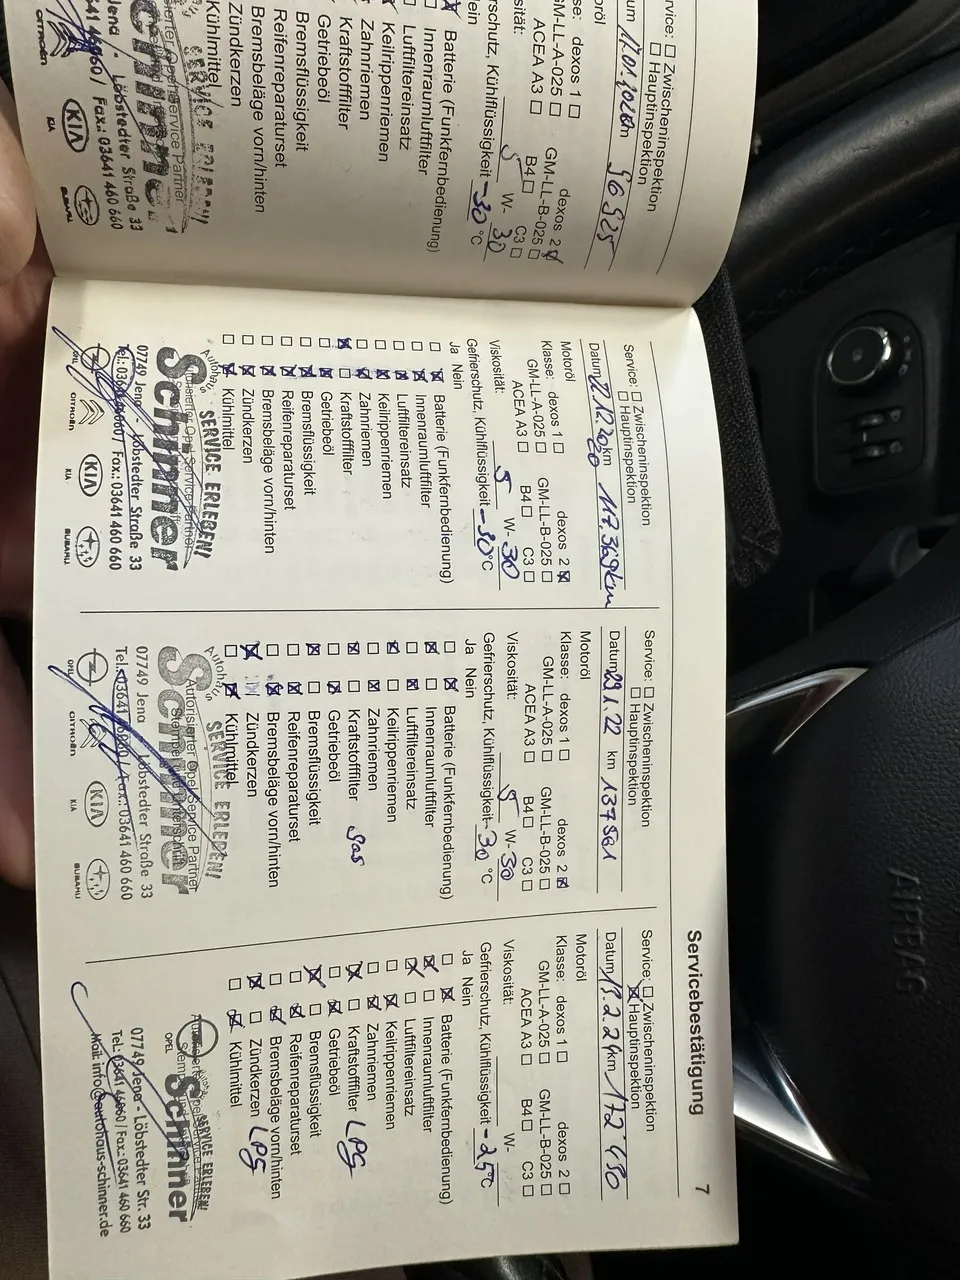 Service: ☐ Zwischeninspektion
☐ Hauptinspektion
17.01.2020 km 96925
dexos 1 ☐ dexos 2 ☒
GM-LL-A-025 ☐ GM-LL-B-025 ☐
ACEA A3 ☐ B4 ☐ C3 ☐
5 W- 30
Gefrierschutz, Kühlflüssigkeit -30 °C
Batterie (Funkfernbedienung)
Innenraumluftfilter
Luftfiltereinsatz
Keilrippenriemen
Zahnriemen
Kraftstofffilter
Getriebeöl
Bremsflüssigkeit
Reifenreparaturset
Bremsbeläge vorn/hinten
Zündkerzen
Kühlmittel
SERVICE ERLEBEN!
Schinner
Jena - Löbstedter Straße 33
Fax.: 03641 460 660
CITROËN KIA SUBARU
Service: ☐ Zwischeninspektion
☐ Hauptinspektion
Datum 2.12.2020 km 117.369km
Motoröl
Klasse: dexos 1 ☐ dexos 2 ☒
GM-LL-A-025 ☐ GM-LL-B-025 ☐
ACEA A3 ☐ B4 ☐ C3 ☐
Viskosität: 5 W- 30
Gefrierschutz, Kühlflüssigkeit -30 °C
Ja Nein
☐ ☒ Batterie (Funkfernbedienung)
☐ ☒ Innenraumluftfilter
☐ ☒ Luftfiltereinsatz
☐ ☒ Keilrippenriemen
☐ ☒ Zahnriemen
☒ ☐ Kraftstofffilter
☐ ☒ Getriebeöl
☐ ☒ Bremsflüssigkeit
☐ ☒ Reifenreparaturset
☐ ☒ Bremsbeläge vorn/hinten
☐ ☒ Zündkerzen
☐ ☒ Kühlmittel
Autohaus SERVICE ERLEBEN!
Schinner
07749 Jena - Löbstedter Straße 33
Fax.: 03641 460 660
OPEL CITROËN KIA SUBARU
Service: ☐ Zwischeninspektion
☐ Hauptinspektion
Datum km 137561
Motoröl
Klasse: dexos 1 ☐ dexos 2 ☒
GM-LL-A-025 ☐ GM-LL-B-025 ☐
ACEA A3 ☐ B4 ☐ C3 ☐
Viskosität: 5 W- 30
Gefrierschutz, Kühlflüssigkeit -30 °C
Ja Nein
☐ ☒ Batterie (Funkfernbedienung)
☒ ☐ Innenraumluftfilter
☐ ☒ Luftfiltereinsatz
☒ ☐ Keilrippenriemen
☐ ☒ Zahnriemen
☒ ☐ Kraftstofffilter Gas
☐ ☒ Getriebeöl
☒ ☐ Bremsflüssigkeit
☐ ☒ Reifenreparaturset
☐ ☒ Bremsbeläge vorn/hinten
☒ Zündkerzen
☐ ☒ Kühlmittel
Autohaus SERVICE ERLEBEN!
Schinner
Autorisierter Opel Service Partner
07749 Jena - Löbstedter Straße 33
Fax.: 03641 460 660
OPEL CITROËN KIA SUBARU
Servicebestätigung
Service: ☐ Zwischeninspektion
☒ Hauptinspektion
Datum 15.2.24 km 172'480
Motoröl
Klasse: dexos 1 ☐ dexos 2 ☐
GM-LL-A-025 ☐ GM-LL-B-025 ☐
ACEA A3 ☐ B4 ☐ C3 ☐
Viskosität: W-
Gefrierschutz, Kühlflüssigkeit -25 °C
Ja Nein
☐ ☒ Batterie (Funkfernbedienung)
☒ ☐ Innenraumluftfilter
☒ ☐ Luftfiltereinsatz
☐ ☒ Keilrippenriemen
☐ ☒ Zahnriemen
☒ ☐ Kraftstofffilter LPG
☐ ☒ Getriebeöl
☒ ☐ Bremsflüssigkeit
☐ ☒ Reifenreparaturset
☐ ☒ Bremsbeläge vorn/hinten
☒ ☐ Zündkerzen LPG
☐ ☒ Kühlmittel
SERVICE ERLEBEN!
OPEL Schinner
07749 Jena - Löbstedter Str. 33
Tel.: 03641 46060 / Fax: 03641 460 660
Mail: info@autohaus-schinner.de
7
AIRBAG